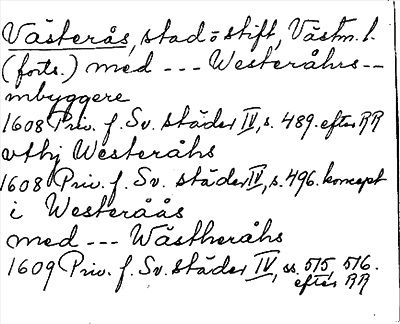 Västerås, stad o stift, Västm. l.
(forts.) med --- Westeråhrs--
mbyggere
1608 Priv. f. Sv. städer IV, s. 489. efter RR
vthj Westeråhs
1608 Priv. f. Sv. städer IV, s. 496. koncept
i Westeråås
med --- Wästheråhs
1609 Priv. f. Sv. städer IV, ss. 515, 516.
efter RR